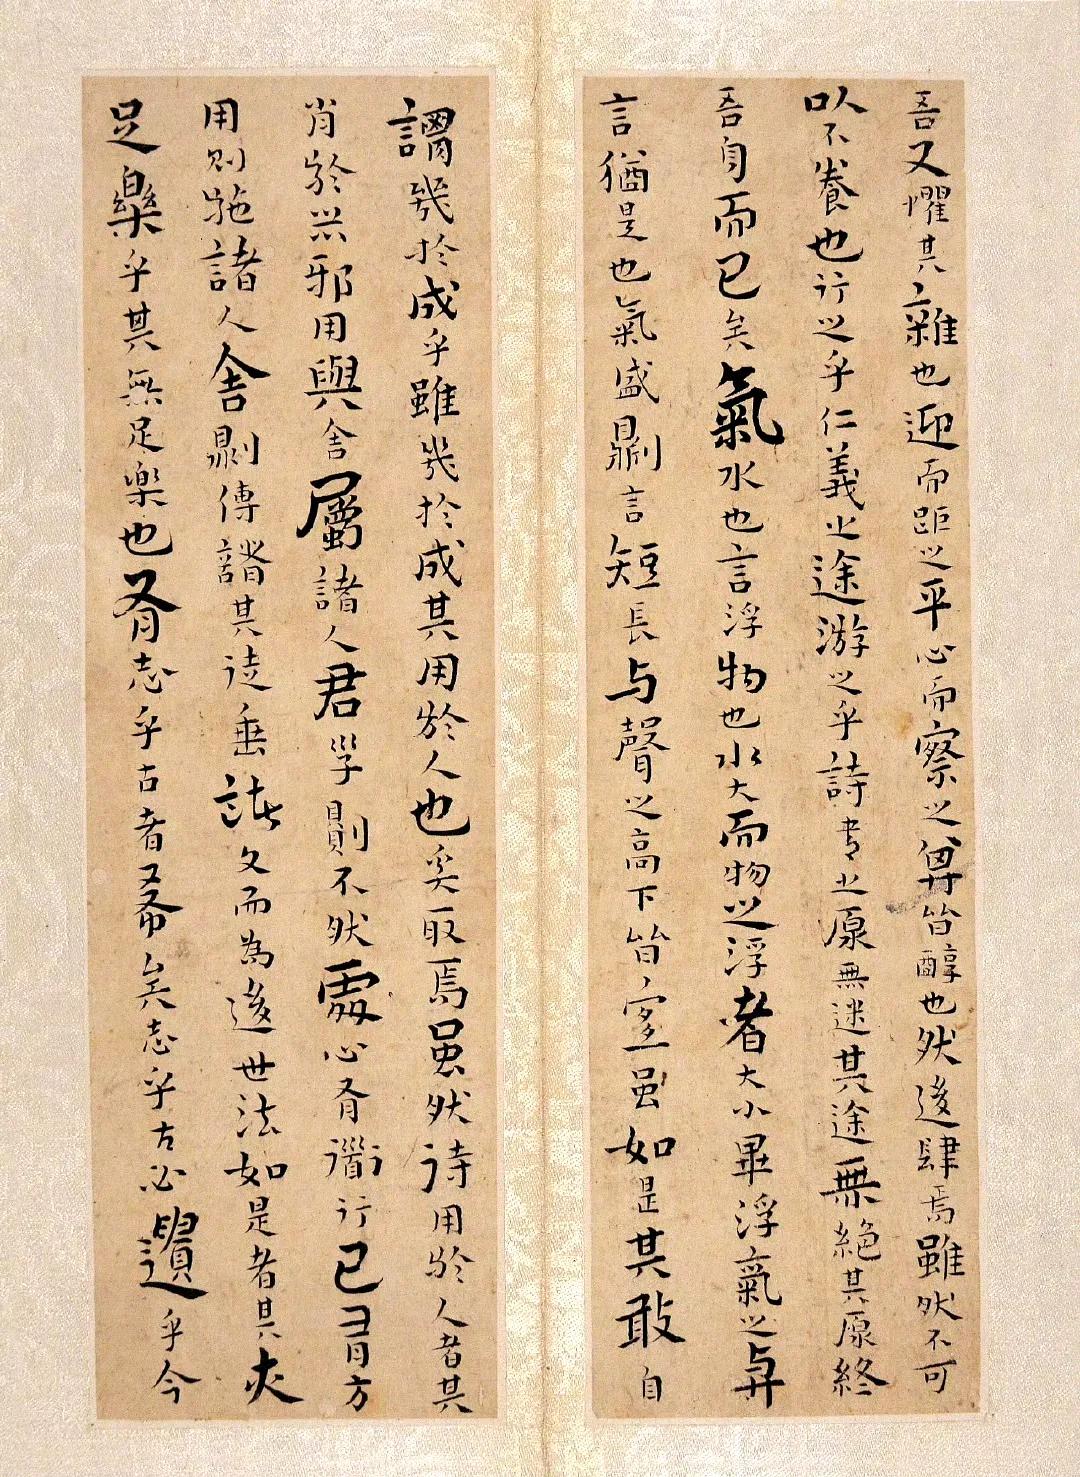 吾又懼其雜也迎而距之平心而察之其皆醇也然後肆焉雖然不可
以不養也行之乎仁義之途游之乎詩書之原無迷其途無絕其原終
吾身而已矣氣水也言浮物也水大而物之浮者大小畢浮氣之與
言猶是也氣盛則言短長与聲之高下皆宜虽如是其敢自
謂幾於成乎雖幾於成其用於人也奚取焉虽然待用於人者其
肖於器邪用與舍屬諸人君子則不然處心有道行已有方
用則施諸人舍則傳諸其徒垂諸文而為後世法如是者其亦
足樂乎其無足樂也有志乎古者希矣志乎古必遺乎今